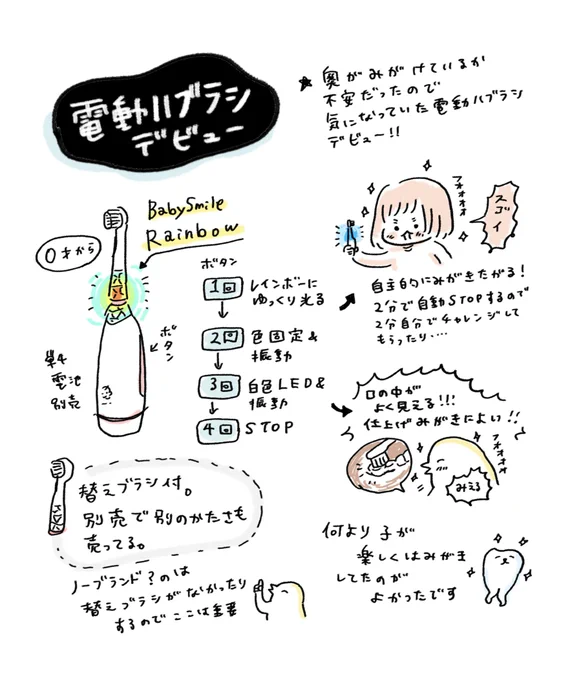 電動ハブラシ
デビュー
★ 奥がみがけているか
不安だったので
気になっていた電動ハブラシ
デビュー!!
BabySmile
Rainbow
0才から
ボタン
単4
電池
別売
ボタン
1回 レインボーに
ゆっくり光る
2回 色固定&
振動
3回 白色LED&
振動
4回 STOP
フォオオオ
スゴイ
自主的にみがきたがる!
2分で自動STOPするので
2分自分でチャレンジして
もらったり・・・・
口の中が
よく見える!!!
仕上げみがきによい!!
フォオオオ
みえる
替えブラシ付。
別売で別のかたさも
売ってる。
ノーブランド?のは
替えブラシがなかったり
するのでここは重要
何より子が
楽しくはみがき
してたのが
よかったです